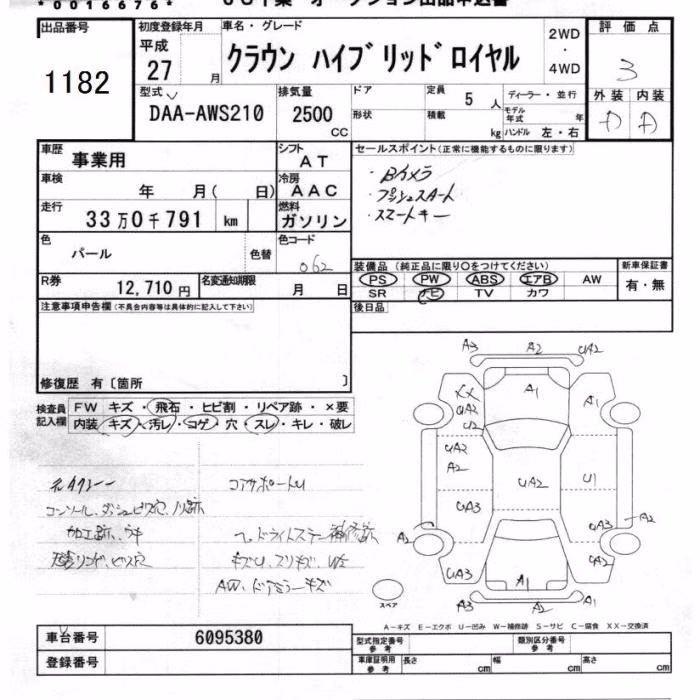 *0016676*
出品番号
1182
初度登録年月
平成
27 月
車名・グレード
クラウン ハイブリッドロイヤル
2WD
・
4WD
評価点
3
外装 内装
D A
型式
DAA-AWS210
排気量
2500
CC
ドア
形状
定員
5 人
積載
kg
ディーラー・並行
モデル年式 年
ハンドル 左・右
車歴
事業用
シフト
AT
車検
年 月( 日)
冷房
AAC
走行
33万0千791 km
燃料
ガソリン
セールスポイント(正常に機能するものに限ります)
・Bカメラ
・プッシュスタート
・スマートキー
色
パール
色替
色コード
062
装備品(純正品に限り○をつけてください)
PS PW ABS エアB AW
SR ナビ TV カワ
新車保証書
有・無
R券
12,710円
名変通知期限
月 日
後日品
注意事項申告欄(不具合内容等は具体的に記入して下さい)
修復歴 有〔箇所 〕
検査員記入欄
FW キズ・飛石・ヒビ割・リペア跡・×要
内装 キズ・汚レ・コゲ・穴・スレ・キレ・破レ
元タクシー
コンソール、ダッシュビス穴、ノリ跡
加工跡、ウキ
コアサポートU
ヘッドライトステー補修跡
キズU、スリキズ、U2
AW、ドアミラーキズ
A3 A2 UA2
XX
UA2
U2
A1
A1
UA2
A2
UA2
U1
UA3
UA3
A2
A2
UA3
A1
A3 A2 A1
スペア
A-キズ E-エクボ U-凹み W-補修跡 S-サビ C-腐食 XX-交換済
車台番号
6095380
登録番号
型式指定番号
参考
類別区分番号
参考
車庫証明用
参考
長さ cm
幅 cm
高さ cm